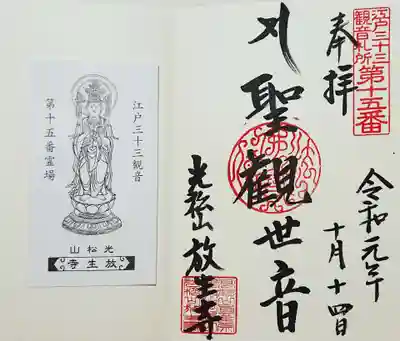 江戸三十三
観音札所
第十五番
奉拝
令和元年
十月十四日
聖觀世音
光松山放生寺
江戸三十三観音
第十五番霊場
光松山
放生寺